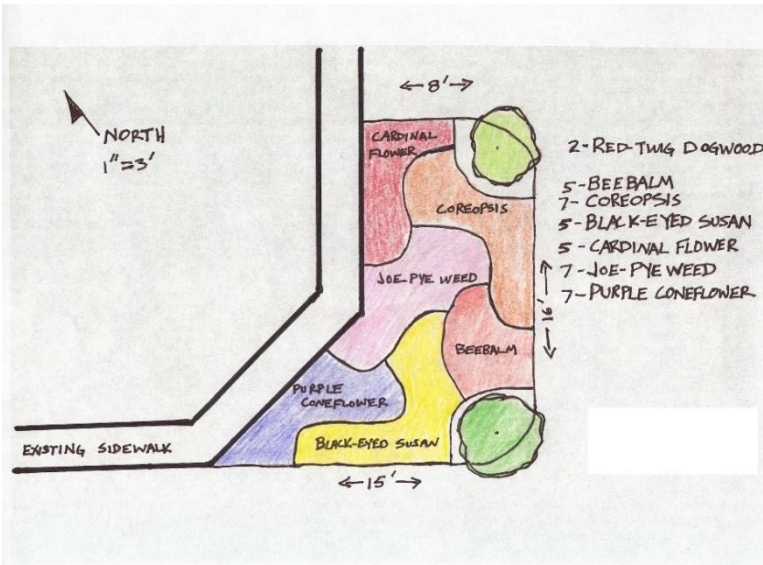 NORTH
1"=3'
8'
CARDINAL
FLOWER
COREOPSIS
JOE-PYE WEED
BEEBALM
PURPLE
CONEFLOWER
BLACK-EYED SUSAN
EXISTING SIDEWALK
15'
16'
2-RED-TWIG DOGWOOD
5-BEEBALM
7-COREOPSIS
5-BLACK-EYED SUSAN
5-CARDINAL FLOWER
7-JOE-PYE WEED
7-PURPLE CONEFLOWER